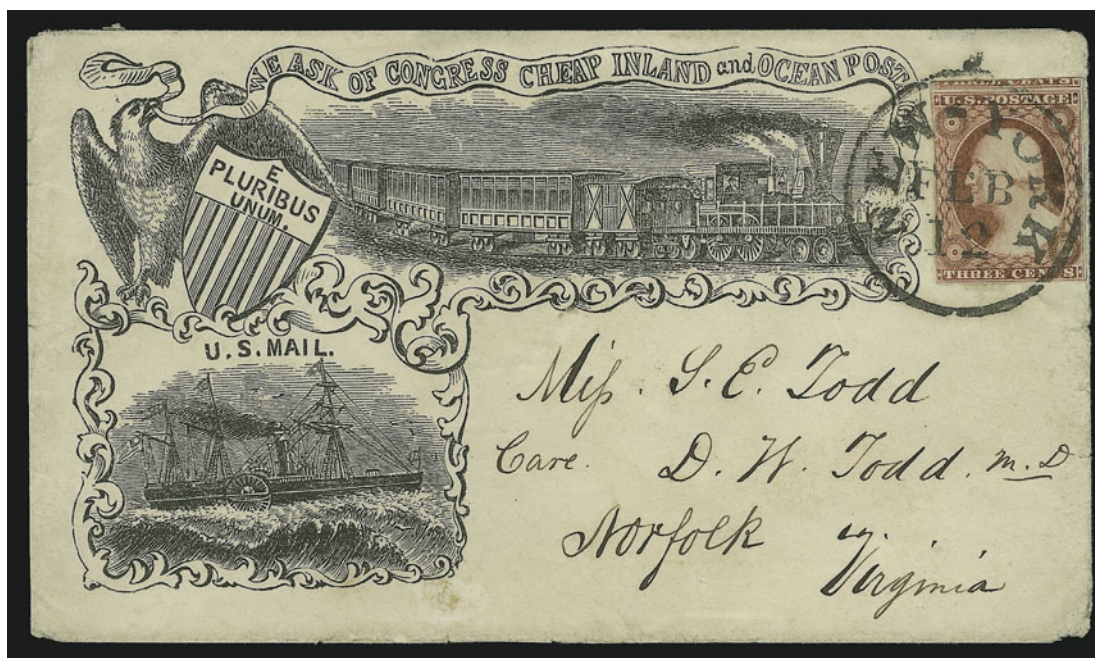 WE ASK OF CONGRESS CHEAP INLAND and OCEAN POST
E
PLURIBUS
UNUM.
U.S. MAIL.
U.S. POSTAGE
THREE CENTS
NEW-YORK
FEB
12
Miss. S. E. Todd
Care. D. W. Todd. M.D
Norfolk
Virginia